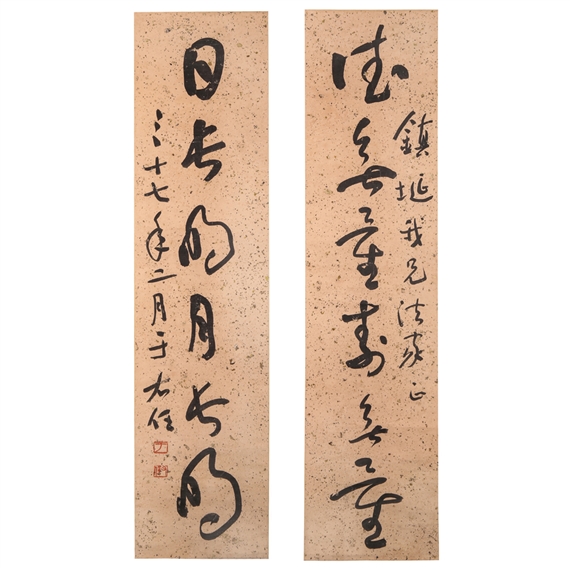 鎮埏我兄法家正
德無量壽無量
日長明月長明
三十七年二月于右任